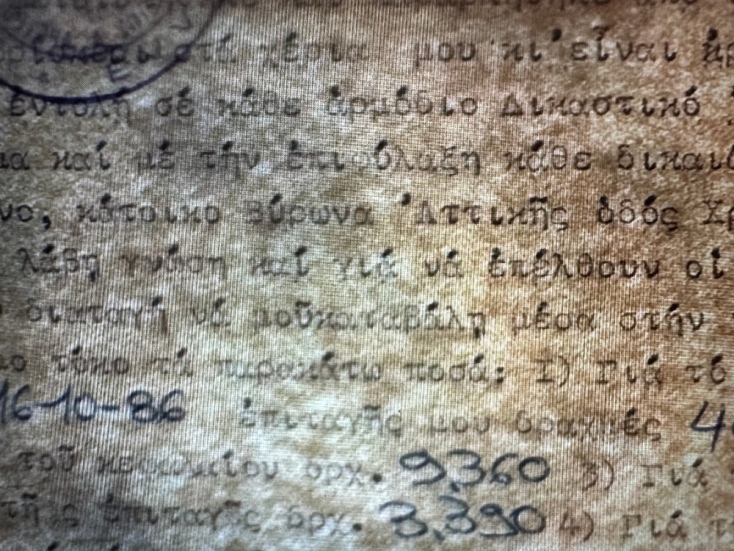 στά χέρια μου κι' εἶναι
ἐντολή σέ κάθε ἁρμόδιο Δικαστικό
καί μέ τήν ἐπιφύλαξη κάθε
κάτοικο Βύρωνα 'Αττικῆς ὁδός
λάβη γνώση καί γιά νά ἐπέλθουν οἱ
διαταγή νά μοῦκαταβάλη μέσα στήν
τόκο τά παρακάτω ποσά: 1) Γιά τό
16-10-86 ἐπιταγῆς μου δραχμές
τοῦ κεφαλαίου δρχ. 9.360 3) Γιά
τῆς ἐπιταγῆς δρχ. 3.390 4) Γιά